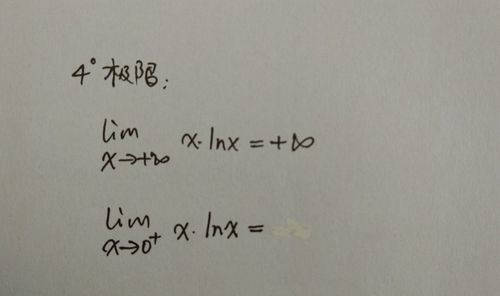 4° 极限:
lim x→+∞ x·lnx = +∞
lim x→0⁺ x·lnx =